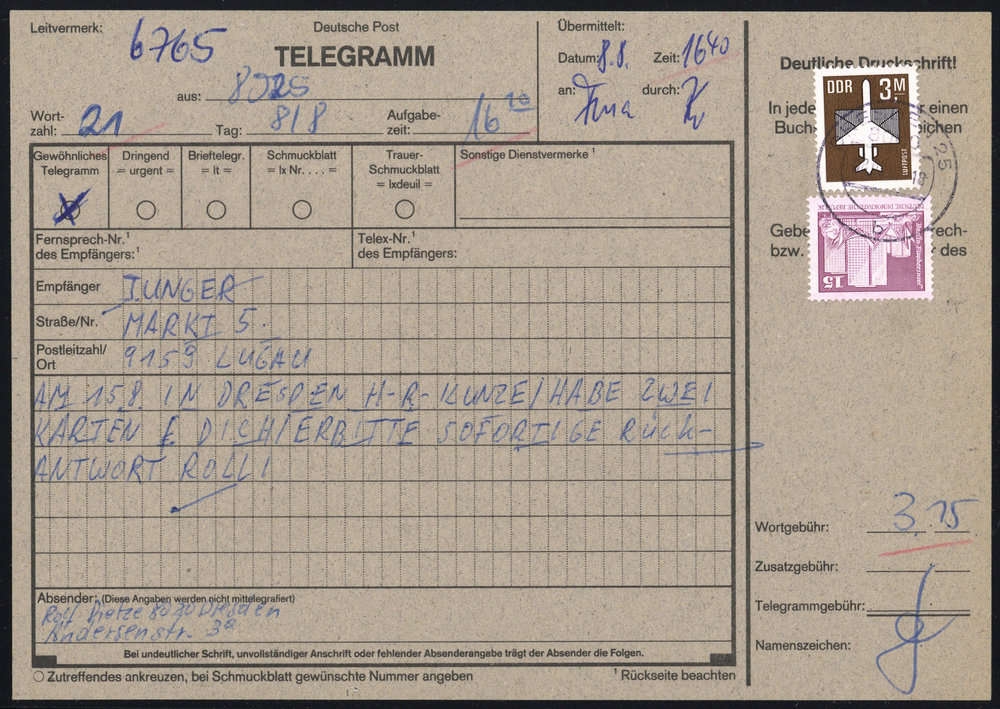 Leitvermerk: 6765
Deutsche Post
TELEGRAMM
aus: 8025
Wort-
zahl: 21 Tag: 8/8 Aufgabe-
zeit: 16
Übermittelt:
Datum: 8.8. Zeit: 1640
an: durch:
Deutliche Druckschrift!
In jede einen
Buch eichen
Gebe rech-
bzw. des
DDR 3,M
LUFTPOST
DEUTSCHE DEMOKRATISCHE REPUBLIK
15
Gewöhnliches
Telegramm
Dringend
= urgent =
Brieftelegr.
= lt =
Schmuckblatt
= lx Nr. . . . =
Trauer-
Schmuckblatt
= lxdeuil =
Sonstige Dienstvermerke ¹
Fernsprech-Nr.¹
des Empfängers:¹
Telex-Nr.¹
des Empfängers:
Empfänger JUNGER
Straße/Nr. MARKT 5
Postleitzahl/
Ort 9159 LUGAU
AM 15.8. IN DRESDEN H-R-KUNZE/HABE ZWEI
KARTEN F. DICH/ERBITTE SOFORTIGE RÜCK-
ANTWORT ROLLI
Absender: (Diese Angaben werden nicht mittelegrafiert)
Rolf Dietze 8020 Dresden
Andersenstr. 3a
Bei undeutlicher Schrift, unvollständiger Anschrift oder fehlender Absenderangabe trägt der Absender die Folgen.
○ Zutreffendes ankreuzen, bei Schmuckblatt gewünschte Nummer angeben
¹ Rückseite beachten
Wortgebühr: 3,15
Zusatzgebühr:
Telegrammgebühr:
Namenszeichen: